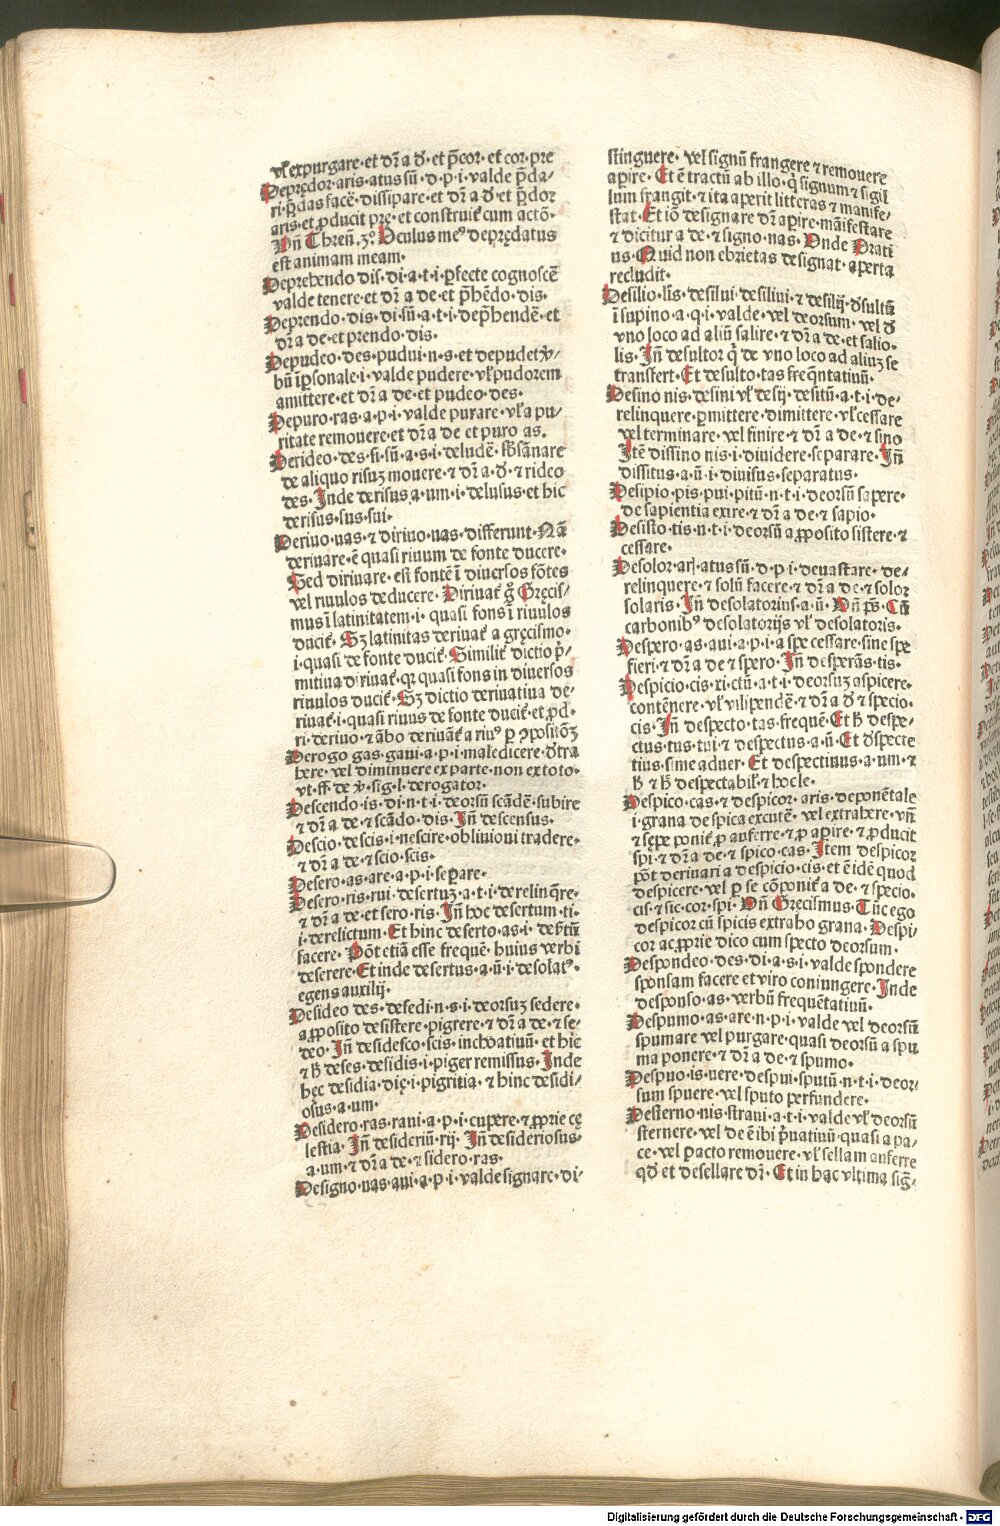 vl̓ expurgare·et dr̄ a ð·et p̄cor·et cor·pre
Deprędor·aris·atus sū·d·p·i·valde p̄da/
ri·p̄das facē·dissipare·et dr̄ a ð·et p̄dor
aris·et ꝓducit pre·et construit̄ cum actō·
Vn̄ Thren̄·3°·Oculus meꝰ depr̨edatus
est animam meam·
Deprehendo dis·di·a·t·i·ꝑfecte cognoscē
valde tenere·et dr̄ a de·et p̄hēdo·dis·
Deprendo·dis·di·sū·a·t·i·dep̄hendē·et
dr̄ a de·et prendo·dis·
Depudeo·des·pudui·n·s·et depudet v̓/
bū īꝑsonale·i·valde pudere·vl̓ pudorem
amittere·et dr̄ a de·et pudeo·des·
Depuro·ras·a·p·i·valde purare·vl̓ a pu/
ritate remouere·et dr̄ a de et puro as·
Derideo·des·si·sū·a·s·i·deludē·sb̓sānare
de aliquo risuʒ mouere·⁊ dr̄ a·ð·⁊ rideo
des·Inde derisus·a·um·i·delusus·et hic
derisus·sus·sui·
Deriuo·uas·⁊ diriuo·uas·differunt·Nā
deriuare·ē quasi riuum de fonte ducere·
Sed diriuare·est fontē ī diuersos fōtes
vel riuulos deducere·Diriuat̄ gͦ Gręcis/
mus ī latinitatem·i·quasi fons ī riuulos
ducit̄·Sʒ latinitas deriuat̄ a gręcismo·
i·quasi de fonte ducit̄·Similit̄ dictio p̄/
mitiua diriuat̄·qꝛ quasi fons in diuersos
riuulos ducit̄·Sʒ dictio deriuatiua de/
riuat̄·i·quasi riuus de fonte ducit̄·et ꝓd·
ri·deriuo·⁊ ābo deriuāt̄ a riuꝰ ꝑ ꝯpositōʒ
Derogo gas·gaui·a·p·i·maledicere·ðtra
here·vel diminuere ex parte·non ex toto·
vt·ff·de v̓·sig·l·derogator·
Descendo·is·di·n·t·i·deorsū scādē·subire
⁊ dr̄ a de·⁊ scādo·dis·In̄ descensus·
Descio·descis·i·nescire·obliuioni tradere·
⁊ dr̄ a de·⁊ scio·scis·
Desero·as·are·a·p·i·seꝑare·
Desero·ris·rui·desertuʒ·a·t·i·derelinq̄re·
⁊ dr̄ a de·et sero·ris·In̄ hoc desertum·ti·
i·derelictum·Et hinc deserto·as·i·deb̓tū
facere·Pōt etiā esse frequē·huius verbi
deserere·Et inde desertus·a·ū·i·desolatꝰ·
egens auxilij·
Desideo des·desedi·n·s·i·deorsuʒ sedere·
a ꝓposito desistere·pigrere·⁊ dr̄ a de·⁊ se/
deo·In̄ desidesco·scis·inchoatiuū·et hic
⁊ h̓ deses·desidis·i·piger remissus·Inde
hęc desidia·dię·i·pigritia·⁊ hinc desidi/
osus·a·um·
Desidero·ras·raui·a·p·i·cupere·⁊ ꝓprie cę
lestia·In̄ desideriū·rij·In̄ desideriosus·
a·um·⁊ dr̄ a de·⁊ sidero·ras·
Designo·uas·aui·a·p·i·valde signare·di/
stinguere·vel signū frangere ⁊ remouere
aꝑire·Et ē tractū ab illo·q̓ signum ⁊ sigil
lum frangit·⁊ ita aperit litteras ⁊ manife/
stat·Et iō designare dr̄ aꝑire·māifestare
⁊ dicitur a de·⁊ signo·nas·Vnde Orati
us·Quid non ebrietas designat·aperta
recludit·
Desilio·lis·desilui·desiliui·⁊ desilij·ðsultū
ī supino·a·q·i·valde·vel deorsum·vel ð
vno loco ad aliū salire·⁊ dr̄ a de·et salio·
lis·In̄ desultor q̓ de vno loco ad aliuʒ se
transfert·Et desulto·tas freq̄ntatiuū·
Desino nis·desini vl̓ desij·desitū·a·t·i·de·
relinquere·ꝑmittere·dimittere·vl̓ cessare
vel terminare·vel finire·⁊ dr̄ a de·⁊ sino
Itē dissino nis·i·diuidere·seꝑarare·In̄
dissitus·a·ū·i·diuisus·separatus·
Desipio·pis·pui·pitū·n·t·i·deorsū sapere·
de sapientia exire·⁊ dr̄ a de·⁊ sapio·
Desisto·tis·n·t·i·deorsū a ꝓposito sistere·⁊
cessare·
Desolor·ari·atus sū·d·p·i·deuastare·de/
relinquere·⁊ solū facere·⁊ dr̄ a de·⁊ solor
solaris·In̄ desolatorius·a·ū·Vn̄ ps̄·Cū
carbonibꝰ desolatorijs vl̓ desolatoris·
Despero·as·aui·a·p·i·a spe cessare·sine spe
fieri·⁊ dr̄ a de·⁊ spero·In̄ desperās·tis·
Despicio·cis·xi·ctū·a·t·i·deorsuʒ aspicere·
contēnere·vl̓ vilipendē·⁊ dr̄ a ð ⁊ specio·
cis·In̄ despecto·tas·frequē·Et h̓ despe/
ctus·tus·tui·⁊ despectus·a·ū·Et ðspecte
tius·sime·aduer·Et despectiuus·a·um·⁊
h̓ ⁊ h̓ despectabil̓·⁊ hocle·
Despico·cas·⁊ despicor·aris·deponētale
i·grana de spica excutē·vel extrahere·vn̄
⁊ sępe ponit̄ ꝓ auferre·⁊ ꝓ aꝑire·⁊ ꝓducit
spi·⁊ dr̄ a de·⁊ spico·cas·Item despicor
pōt deriuari a despicio·cis·et ē idē quod
despicere·vel ꝑ se cōponit̄ a de·⁊ specio·
cis·⁊ sic·cor·spi·Vn̄ Gręcismus·Tūc ego
despicor cū spicis extraho grana·Despi/
cor ac ꝓprie dico cum specto deorsum·
Despondeo·des·di·a·s·i·valde spondere
sponsam facere et viro coniungere·Inde
desponso·as·verbū frequētatiuū·
Despumo·as·are·n·p·i·valde vel deorsū
spumare vel purgare·quasi deorsū a spu
ma ponere·⁊ dr̄ a de·⁊ spumo·
Despuo·is·uere·despui·sputū·n·t·i·deor/
sum spuere·vel sputo perfundere·
Desterno·nis·straui·a·t·i·valde vl̓ deorsū
sternere·vel de ē ibi p̄uatiuū·quasi a pa/
ce·vel ꝑacto remouere·vl̓ sellam auferre
qð et desellare dr̄·Et in hac vltima siḡ/
Digitalisierung gefördert durch die Deutsche Forschungsgemeinschaft · DFG